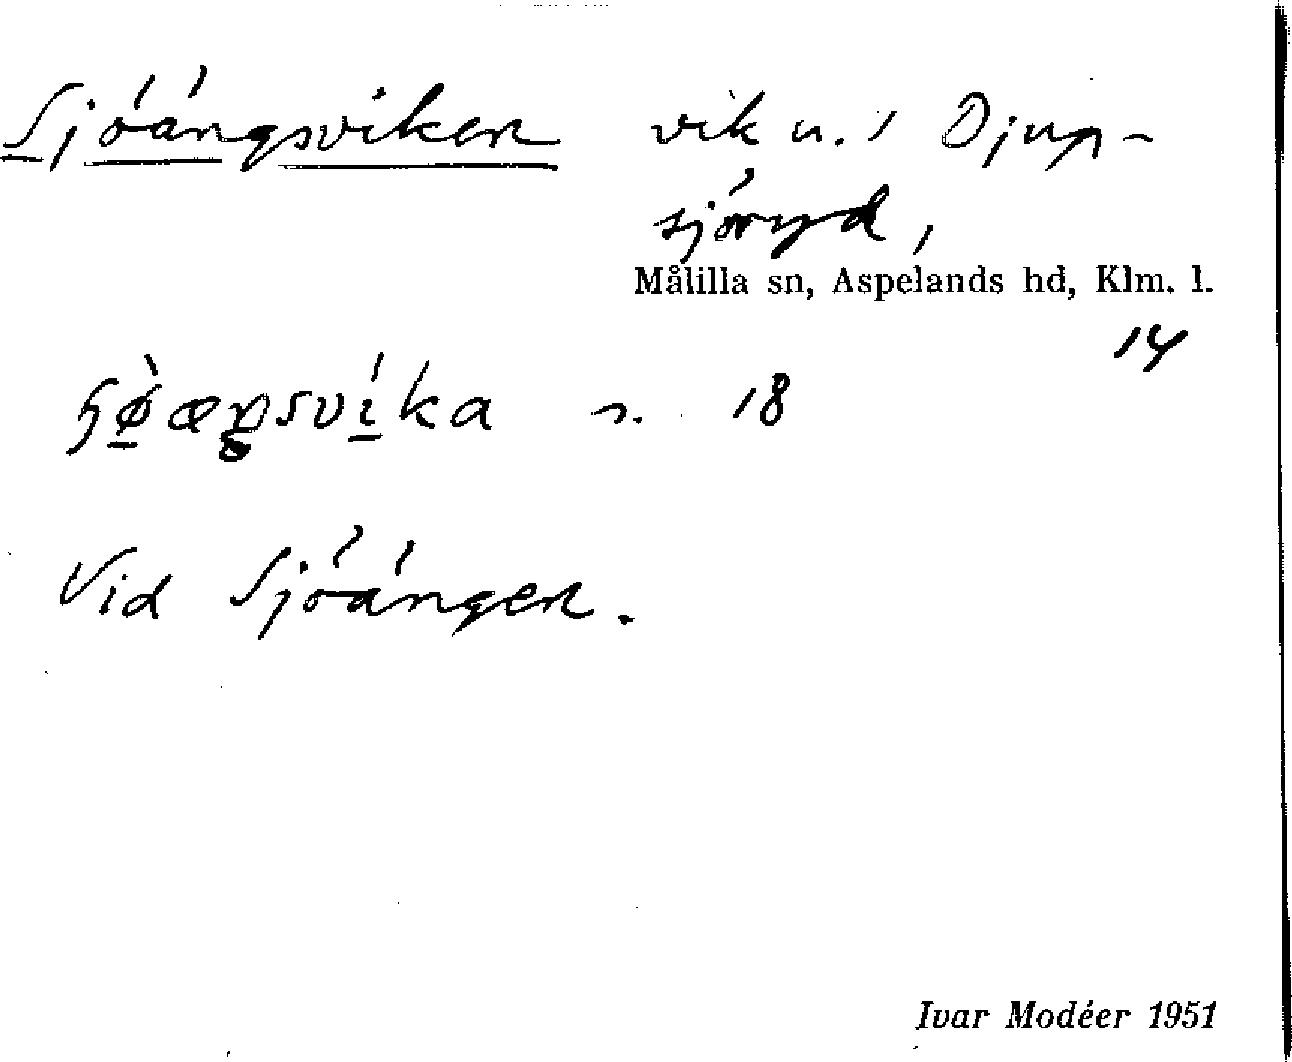 Sjöängsviken vik n. i Djup-
sjöryd,
Målilla sn, Aspelands hd, Klm. l.
14
s. 18
Vid Sjöängen.
Ivar Modéer 1951